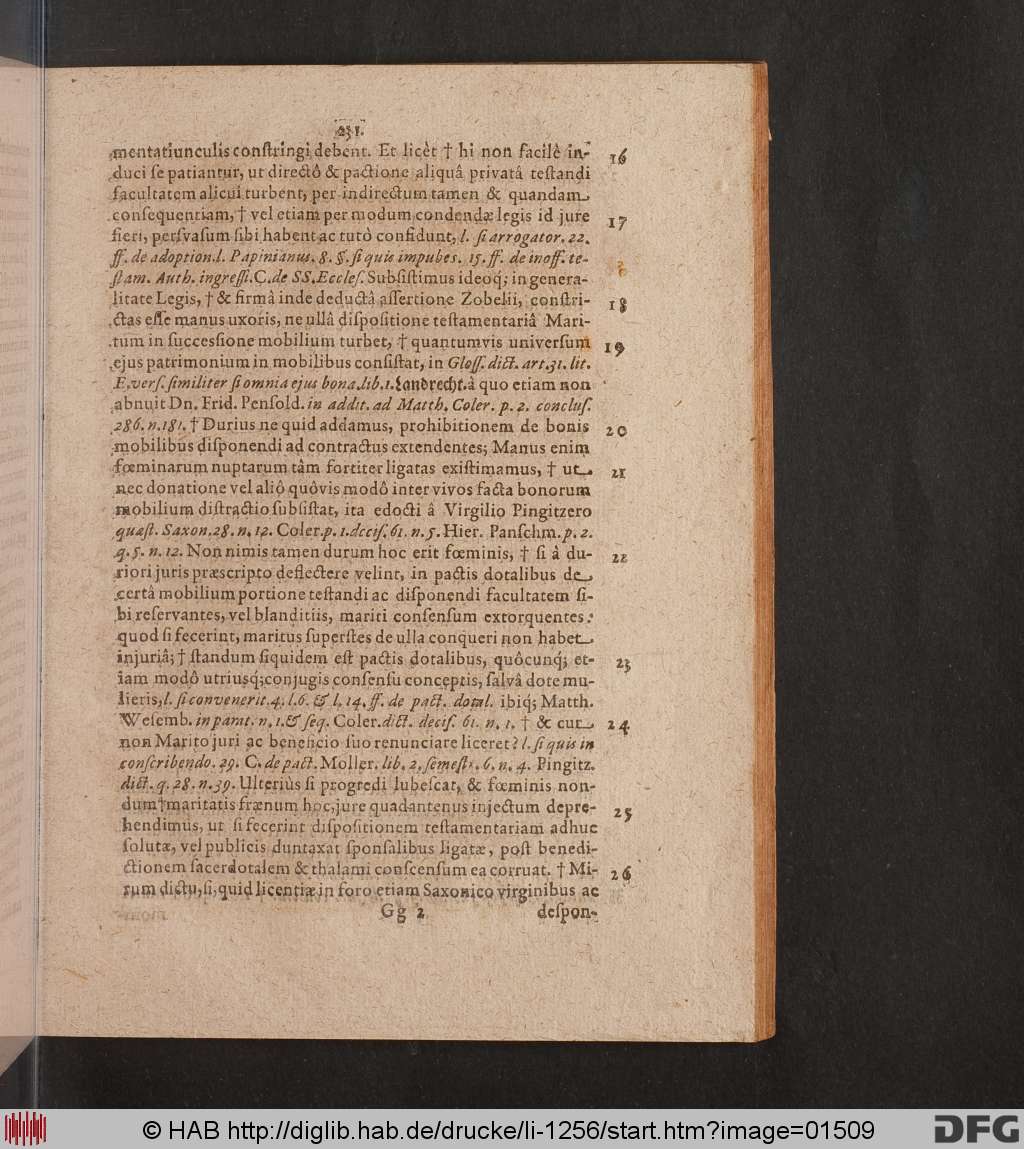 231.
mentatiunculis conſtringi debent. Et licèt † hi non facilè in- 16
duci ſe patiantur, ut directô & pactione aliquâ privatâ teſtandi
facultatem alicui turbent, per indirectum tamen & quandam
conſequentiam, † vel etiam per modum condendæ legis id jure 17
fieri, perſvaſum ſibi habent ac tutò confidunt, l. ſi arrogator. 22.
ff. de adoption. l. Papinianus. 8. §. ſi quis impubes. 15. ff. de inoff. te-
ſtam. Auth. ingreſſi. C. de SS. Eccleſ. Subſiſtimus ideoq́; in genera-
litate Legis, † & firmâ inde deductâ aſſertione Zobelii, conſtri- 18
ctas eſſe manus uxoris, ne ullâ diſpoſitione teſtamentariâ Mari-
tum in ſucceſſione mobilium turbet, † quantumvis univerſum 19
ejus patrimonium in mobilibus conſiſtat, in Gloſſ. dict. art. 31. lit.
E. verſ. ſimiliter ſi omnia ejus bona. lib. 1. Landrecht. à quo etiam non
abnuit Dn. Frid. Penſold. in addit. ad Matth. Coler. p. 2. concluſ.
286. n. 181. † Durius ne quid addamus, prohibitionem de bonis 20
mobilibus diſponendi ad contractus extendentes; Manus enim
fœminarum nuptarum tàm fortiter ligatas exiſtimamus, † ut 21
nec donatione vel aliô quôvis modô inter vivos facta bonorum
mobilium diſtractio ſubſiſtat, ita edocti â Virgilio Pingitzero
quæſt. Saxon. 28. n. 12. Coler. p. 1. deciſ. 61. n. 5. Hier. Panſchm. p. 2.
q. 5. n. 12. Non nimis tamen durum hoc erit fœminis, † ſi à du- 22
riori juris præscripto deflectere velint, in pactis dotalibus de
certâ mobilium portione teſtandi ac diſponendi facultatem ſi-
bi reſervantes, vel blanditiis, mariti conſenſum extorquentes:
quod ſi fecerint, maritus ſuperſtes de ulla conqueri non habet
injuriâ; † ſtandum ſiquidem eſt pactis dotalibus, quôcunq́; et- 23
iam modô utriusq́; conjugis conſenſu conceptis, ſalvâ dote mu-
lieris, l. ſi convenerit. 4. l. 6. & l. 14. ff. de pact. dotal. ibiq́; Matth.
Weſemb. in parat. n. 1. & ſeq. Coler. dict. deciſ. 61. n. 1. † & cur 24
non Marito juri ac beneficio ſuo renunciare liceret? l. ſi quis in
conſcribendo. 29. C. de pact. Moller. lib. 2. ſemeſtr. 6. n. 4. Pingitz.
dict. q. 28. n. 39. Ulteriùs ſi progredi lubeſcat, & fœminis non-
dum † maritatis frænum hoc, jure quadantenus injectum depre- 25
hendimus, ut ſi fecerint diſpoſitionem teſtamentariam adhuc
ſolutæ, vel publicis duntaxat ſponſalibus ligatæ, poſt benedi-
ctionem ſacerdotalem & thalami conſcenſum ea corruat. † Mi- 26
rum dictu, ſi, quid licentiæ in foro etiam Saxonico virginibus ac
Gg 2 deſpon-
© HAB http://diglib.hab.de/drucke/li-1256/start.htm?image=01509
DFG